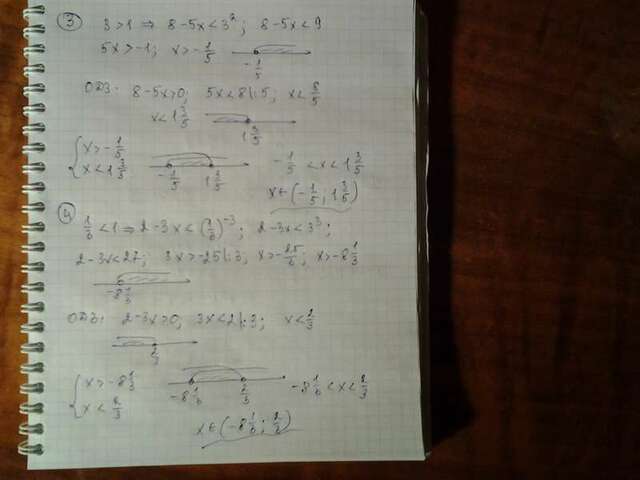 ③ 3>1 ⇒ 8-5x<3²; 8-5x<9
5x>-1; x>-1/5
-1/5
ОДЗ: 8-5x>0; 5x<8|:5; x<8/5
x<1 3/5
1 3/5
{ x>-1/5
x<1 3/5
-1/5 1 3/5
-1/5 <x<1 3/5
x∈(-1/5; 1 3/5)
④ 1/3<1 ⇒ 2-3x<(1/3)⁻³; 2-3x<3³;
2-3x<27; 3x>-25|:3; x>-25/3; x>-8 1/3
-8 1/3
ОДЗ: 2-3x>0; 3x<2|:3; x<2/3
2/3
{ x>-8 1/3
x<2/3
-8 1/3 2/3
-8 1/3<x<2/3
x∈(-8 1/3; 2/3)